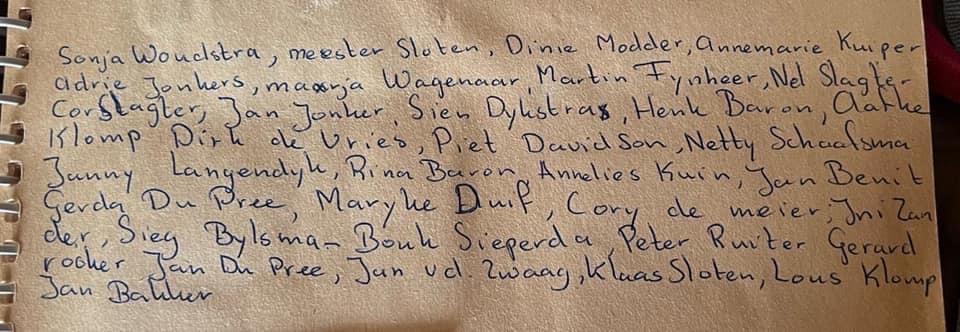 Sonja Woudstra, meester Sloten, Dinie Modder, Annemarie Kuiper
adrie Jonkers, maarja Wagenaar, Martin Fynheer, Nel Slagter-
Cor Slagter, Jan Jonker, Sien Dykstras, Henk Baron, Aafke
Klomp Dirk de Vries, Piet Davidson, Netty Schaafsma
Janny Langendyk, Rina Baron, Annelies Kuin, Jan Benit
Gerda Du Pree, Maryke Duif, Cory de meier, Ini Zan
der, Sieg Bylsma- Bouk Sieperda, Peter Ruiter Gerard
rocher Jan Du Pree, Jan v d. Zwaag, Klaas Sloten, Lous Klomp
Jan Bakker